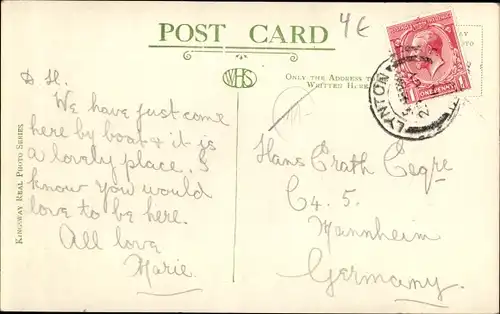 POST CARD
4€
WHS
ONLY THE ADDRESS TO
WRITTEN HERE
ONE PENNY
LYNTON
KINGSWAY REAL PHOTO SERIES
D H.
We have just come
here by boat & it is
a lovely place. I
know you would
love to be here.
All love
Marie.
Hans Erath
C4. 5.
Mannheim
Germany.